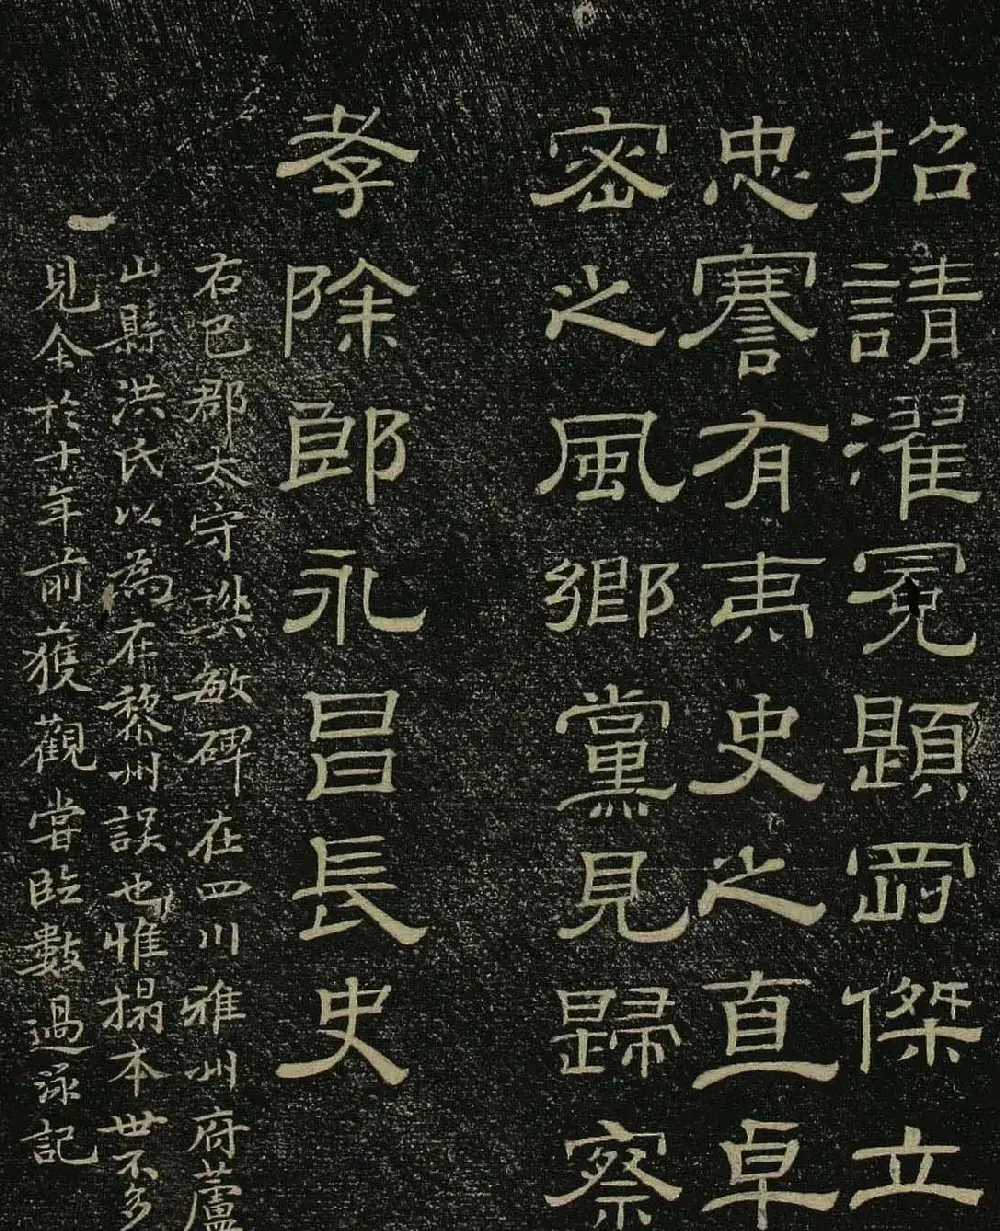 招請濯冕題剛傑立
忠謇有夷史之直卓
密之風鄉黨見歸察
孝除郎永昌長史
右巴郡太守樊敏碑在四川雅州府蘆
山縣洪氏以為在黎州誤也惟搨本世不多
見余於十年前獲觀嘗臨數過泳記